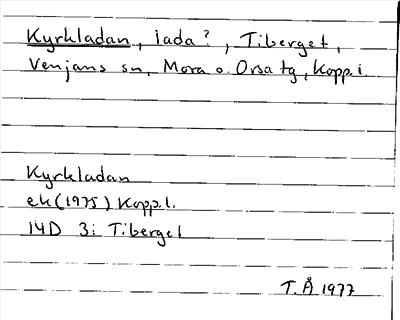 Kyrkladan, lada?, Tiberget,
Venjans sn, Mora o. Orsa tg, Kopp.l.
Kyrkladan
ek (1975) Kopp.l.
14D 3i Tiberget
T.Å 1977